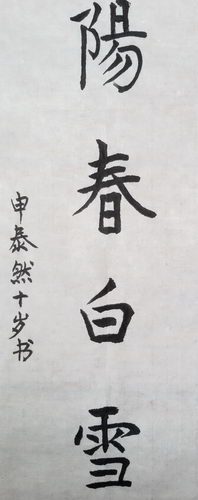 陽春白雪
申泰然十岁书